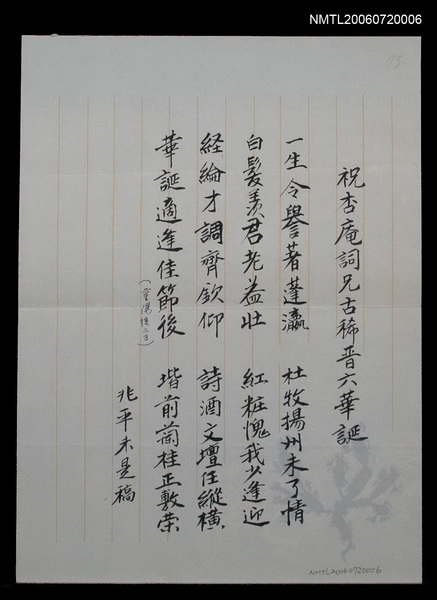 NMTL20060720006
73
祝杏庵詞兄古稀晋六華誕
一生令譽著蓬瀛　杜牧揚州未了情
白髮羨君老益壯　紅粧愧我少逢迎
経綸才調齊欽仰　詩酒文壇任縱橫
華誕適逢佳節後（重陽後二日）　堦前蘭桂正敷荣
兆平未是稿
NMTL20060720006